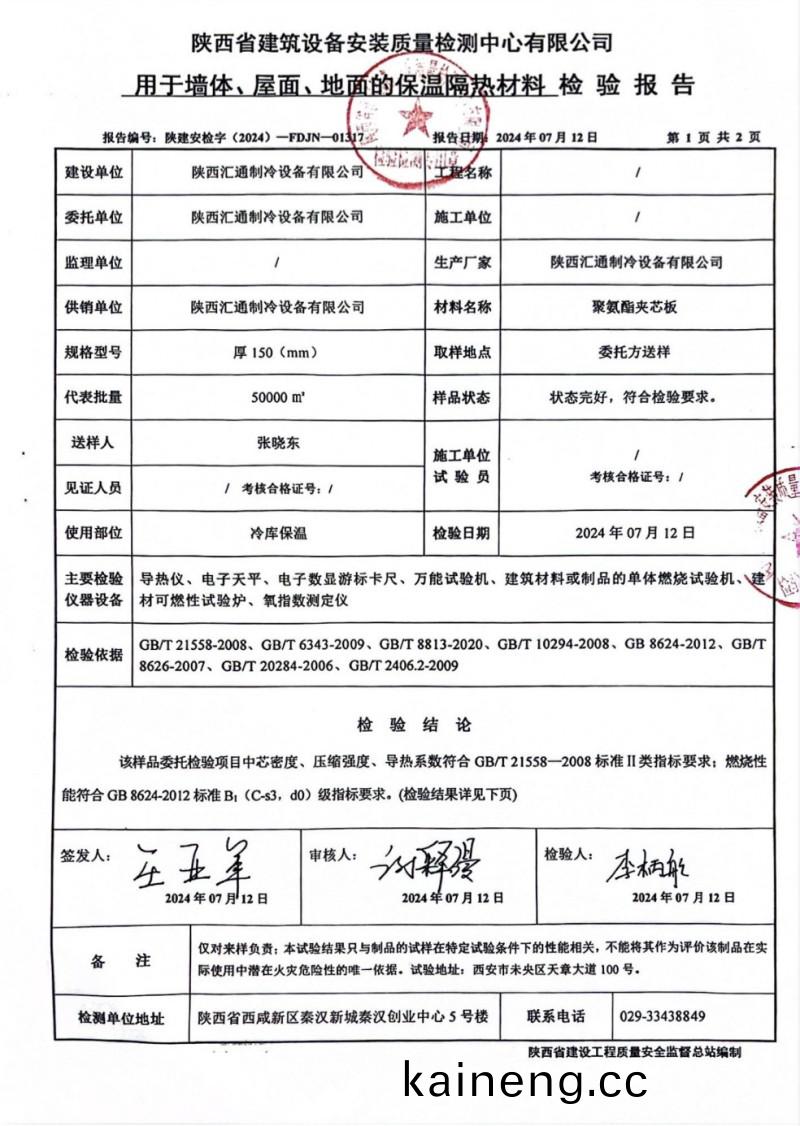 陕西省建筑设备安装质量检测中心有限公司
用于墙体、屋面、地面的保温隔热材料 检 验 报 告
报告编号：陕建安检字（2024）—FDJN—01317 报告日期：2024年07月12日 第 1 页 共 2 页
建设单位 陕西汇通制冷设备有限公司 工程名称 /
委托单位 陕西汇通制冷设备有限公司 施工单位 /
监理单位 / 生产厂家 陕西汇通制冷设备有限公司
供销单位 陕西汇通制冷设备有限公司 材料名称 聚氨酯夹芯板
规格型号 厚 150（mm） 取样地点 委托方送样
代表批量 50000 ㎡ 样品状态 状态完好，符合检验要求。
送样人 张晓东 施工单位 /
试 验 员 考核合格证号：/
见证人员 / 考核合格证号：/
使用部位 冷库保温 检验日期 2024 年 07 月 12 日
主要检验 导热仪、电子天平、电子数显游标卡尺、万能试验机、建筑材料或制品的单体燃烧试验机、建
仪器设备 材可燃性试验炉、氧指数测定仪
检验依据 GB/T 21558-2008、GB/T 6343-2009、GB/T 8813-2020、GB/T 10294-2008、GB 8624-2012、GB/T
8626-2007、GB/T 20284-2006、GB/T 2406.2-2009
检 验 结 论
该样品委托检验项目中芯密度、压缩强度、导热系数符合 GB/T 21558—2008 标准Ⅱ类指标要求；燃烧性
能符合 GB 8624-2012 标准 B₁（C-s3，d0）级指标要求。(检验结果详见下页)
签发人： 审核人： 检验人： 李柄航
2024 年 07 月 12 日 2024 年 07 月 12 日 2024 年 07 月 12 日
备 注 仅对来样负责；本试验结果只与制品的试样在特定试验条件下的性能相关，不能将其作为评价该制品在实
际使用中潜在火灾危险性的唯一依据。试验地址：西安市未央区天章大道 100 号。
检测单位地址 陕西省西咸新区秦汉新城秦汉创业中心 5 号楼 联系电话 029-33438849
陕西省建设工程质量安全监督总站编制
kaineng.cc